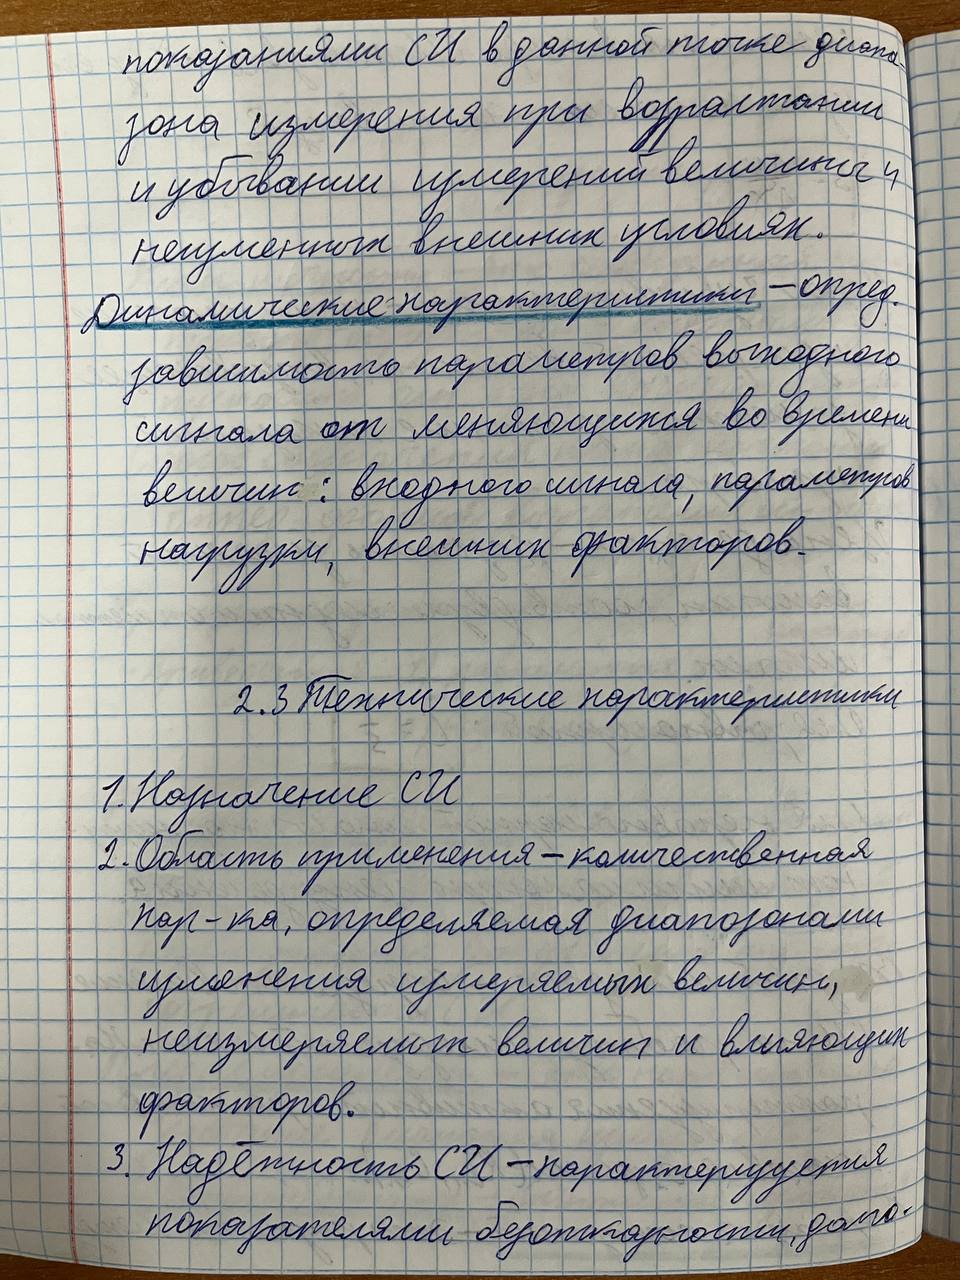 показаниями СИ в данной точке диапа-
зона измерения при возрастании
и убывании измерений величины и
неизменных внешних условиях.
Динамические характеристики - опред.
зависимость параметров выходного
сигнала от меняющихся во времени
величин: входного сигнала, параметров
нагрузки, внешних факторов.
2.3 Технические характеристики
1. Назначение СИ
2. Область применения - количественная
хар-ка, определяемая диапозонами
изменения измеряемых величин,
неизмеряемых величин и влияющих
факторов.
3. Надёжность СИ - характеризуется
показателями безотказности, долго-